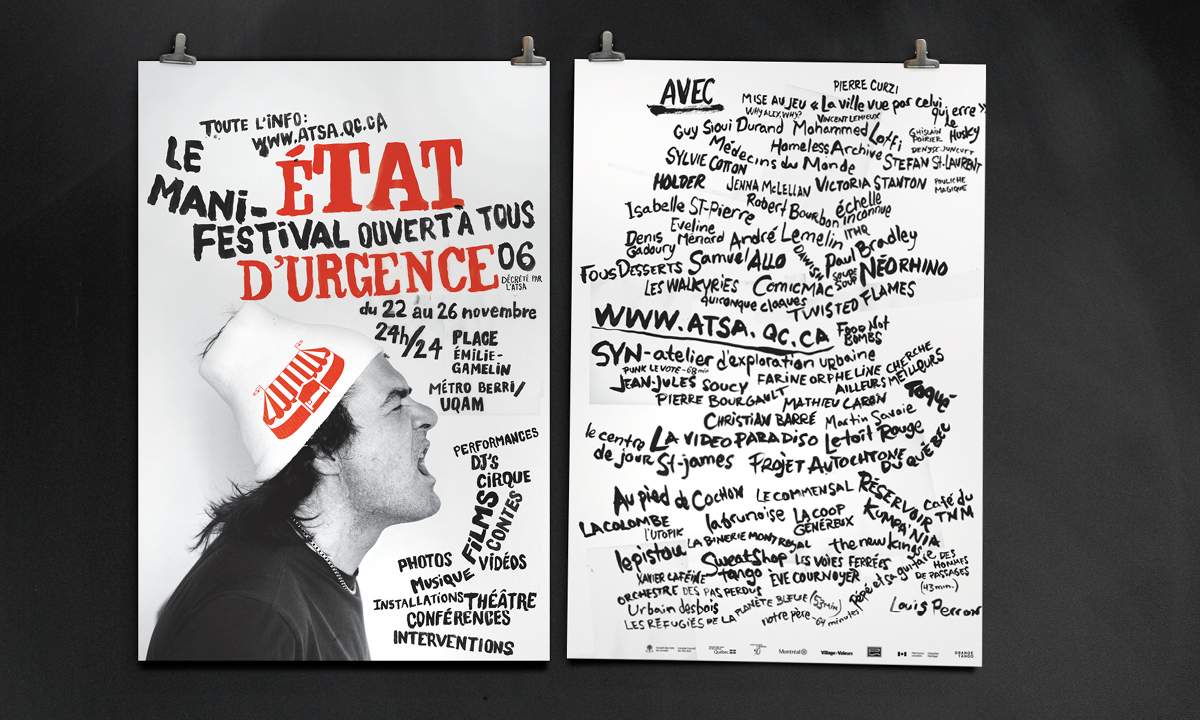 TOUTE L'INFO:
WWW.ATSA.QC.CA
LE
MANI-
ÉTAT
FESTIVAL OUVERT À TOUS
D'URGENCE 06
DÉCRÉTÉ PAR
L'ATSA
du 22 au 26 novembre
24h/24
PLACE
ÉMILIE-
GAMELIN
MÉTRO BERRI/
UQAM
PERFORMANCES
DJ'S
CIRQUE
FILMS
CONTES
VIDÉOS
PHOTOS
Musique
INSTALLATIONS THÉÂTRE
CONFÉRENCES
INTERVENTIONS
AVEC
PIERRE CURZI
MISE AU JEU «La ville vue par celui qui erre»
WHY ALEX, WHY?
VINCENT LEMIEUX
Guy Sioui Durand Mohammed Lotfi
GHISLAIN
POIRIER
le
Husky
Homeless Archive
Médecins du Monde
SYLVIE COTTON
STEFAN St-LAURENT
HOLDER
JENNA McLELLAN VICTORIA STANTON
POULICHE
MAGIQUE
Isabelle ST-Pierre
Robert Bourbon
échelle
inconnue
Eveline
Ménard
Denis
Gadoury
André Lemelin
ITHQ
Samuel ALLO
Paul Bradley
FOUS DESSERTS
SOUPE
SOUP
NÉORHINO
LES WALKYRIES
COMICMAC
quiconque cloaques
TWISTED FLAMES
WWW.ATSA.QC.CA
FOOD NOT
BOMBS
SYN-atelier d'exploration urbaine
PUNK LE VOTE -68min
JEAN-JULES SOUCY
FARINE ORPHELINE CHERCHE
AILLEURS MEILLEURS
PIERRE BOURGAULT
MATHIEU CARON
Toqué
CHRISTIAN BARRÉ
Martin Savoie
le centre
de jour
St-james
LA VIDEO PARADISO
Le toit Rouge
PROJET AUTOCHTONE
DU QUÉBEC
Au pied de COCHON
LE COMMENSAL
RÉSERVOIR
café du
TNM
LA COLOMBE
l'UTOPIK
la brunoise
LA COOP
GÉNÉREUX
KUMPA'NIA
LA BINERIE MONT ROYAL
the new kings
le pistou
Sweat Shop
tango
LES VOIES FERRÉES
XAVIER CAFÉINE
ÈVE COURNOYER
Pépé et sa guitare
DES
HOMMES
DE PASSAGES
(43 min.)
ORCHESTRE DES PAS PERDUS
Urbain desbois
PLANÈTE BLEUE (53min)
LES RÉFUGIÉS DE LA
notre père -64 minutes
Louis Perron
Québec
Montréal
Village-Valeurs
ORANGE
TANGO